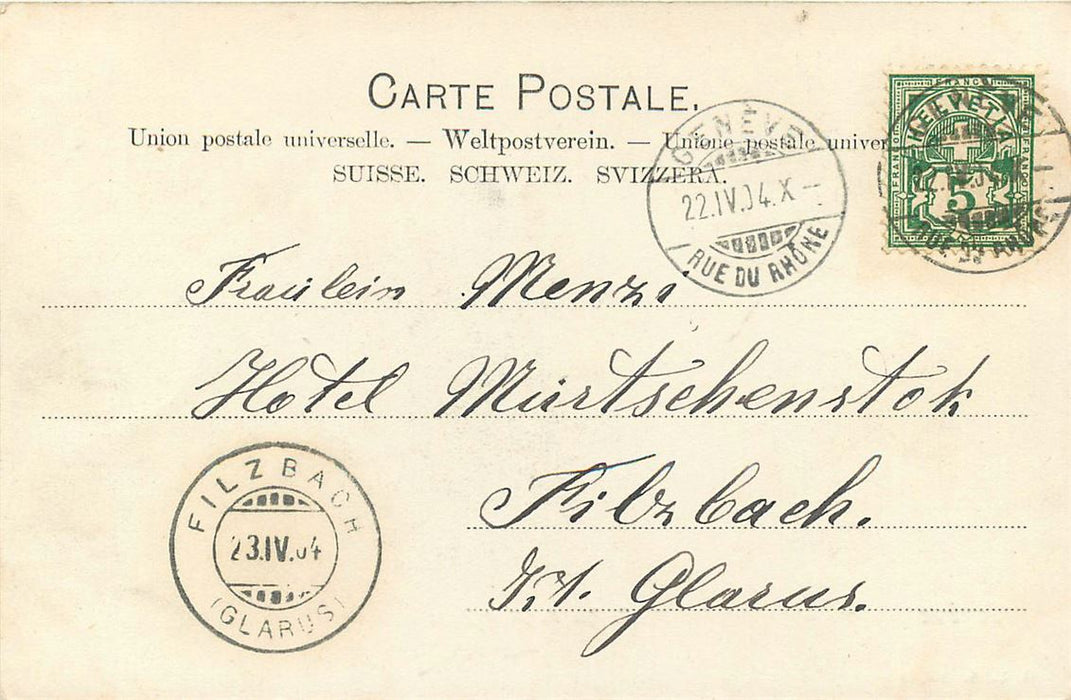 CARTE POSTALE.
Union postale universelle. — Weltpostverein. — Unione postale univer
SUISSE. SCHWEIZ. SVIZZERA.
GENÈVE
22.IV.04.X
RUE DU RHÔNE
FRANCO
HELVETIA
FRANCO
FRANCO
5
RUE DU RHÔNE
Fraülein Menzi
Hotel Mürtschenstok
Filzbach.
Kt. Glarus.
FILZBACH
23.IV.04
(GLARUS)